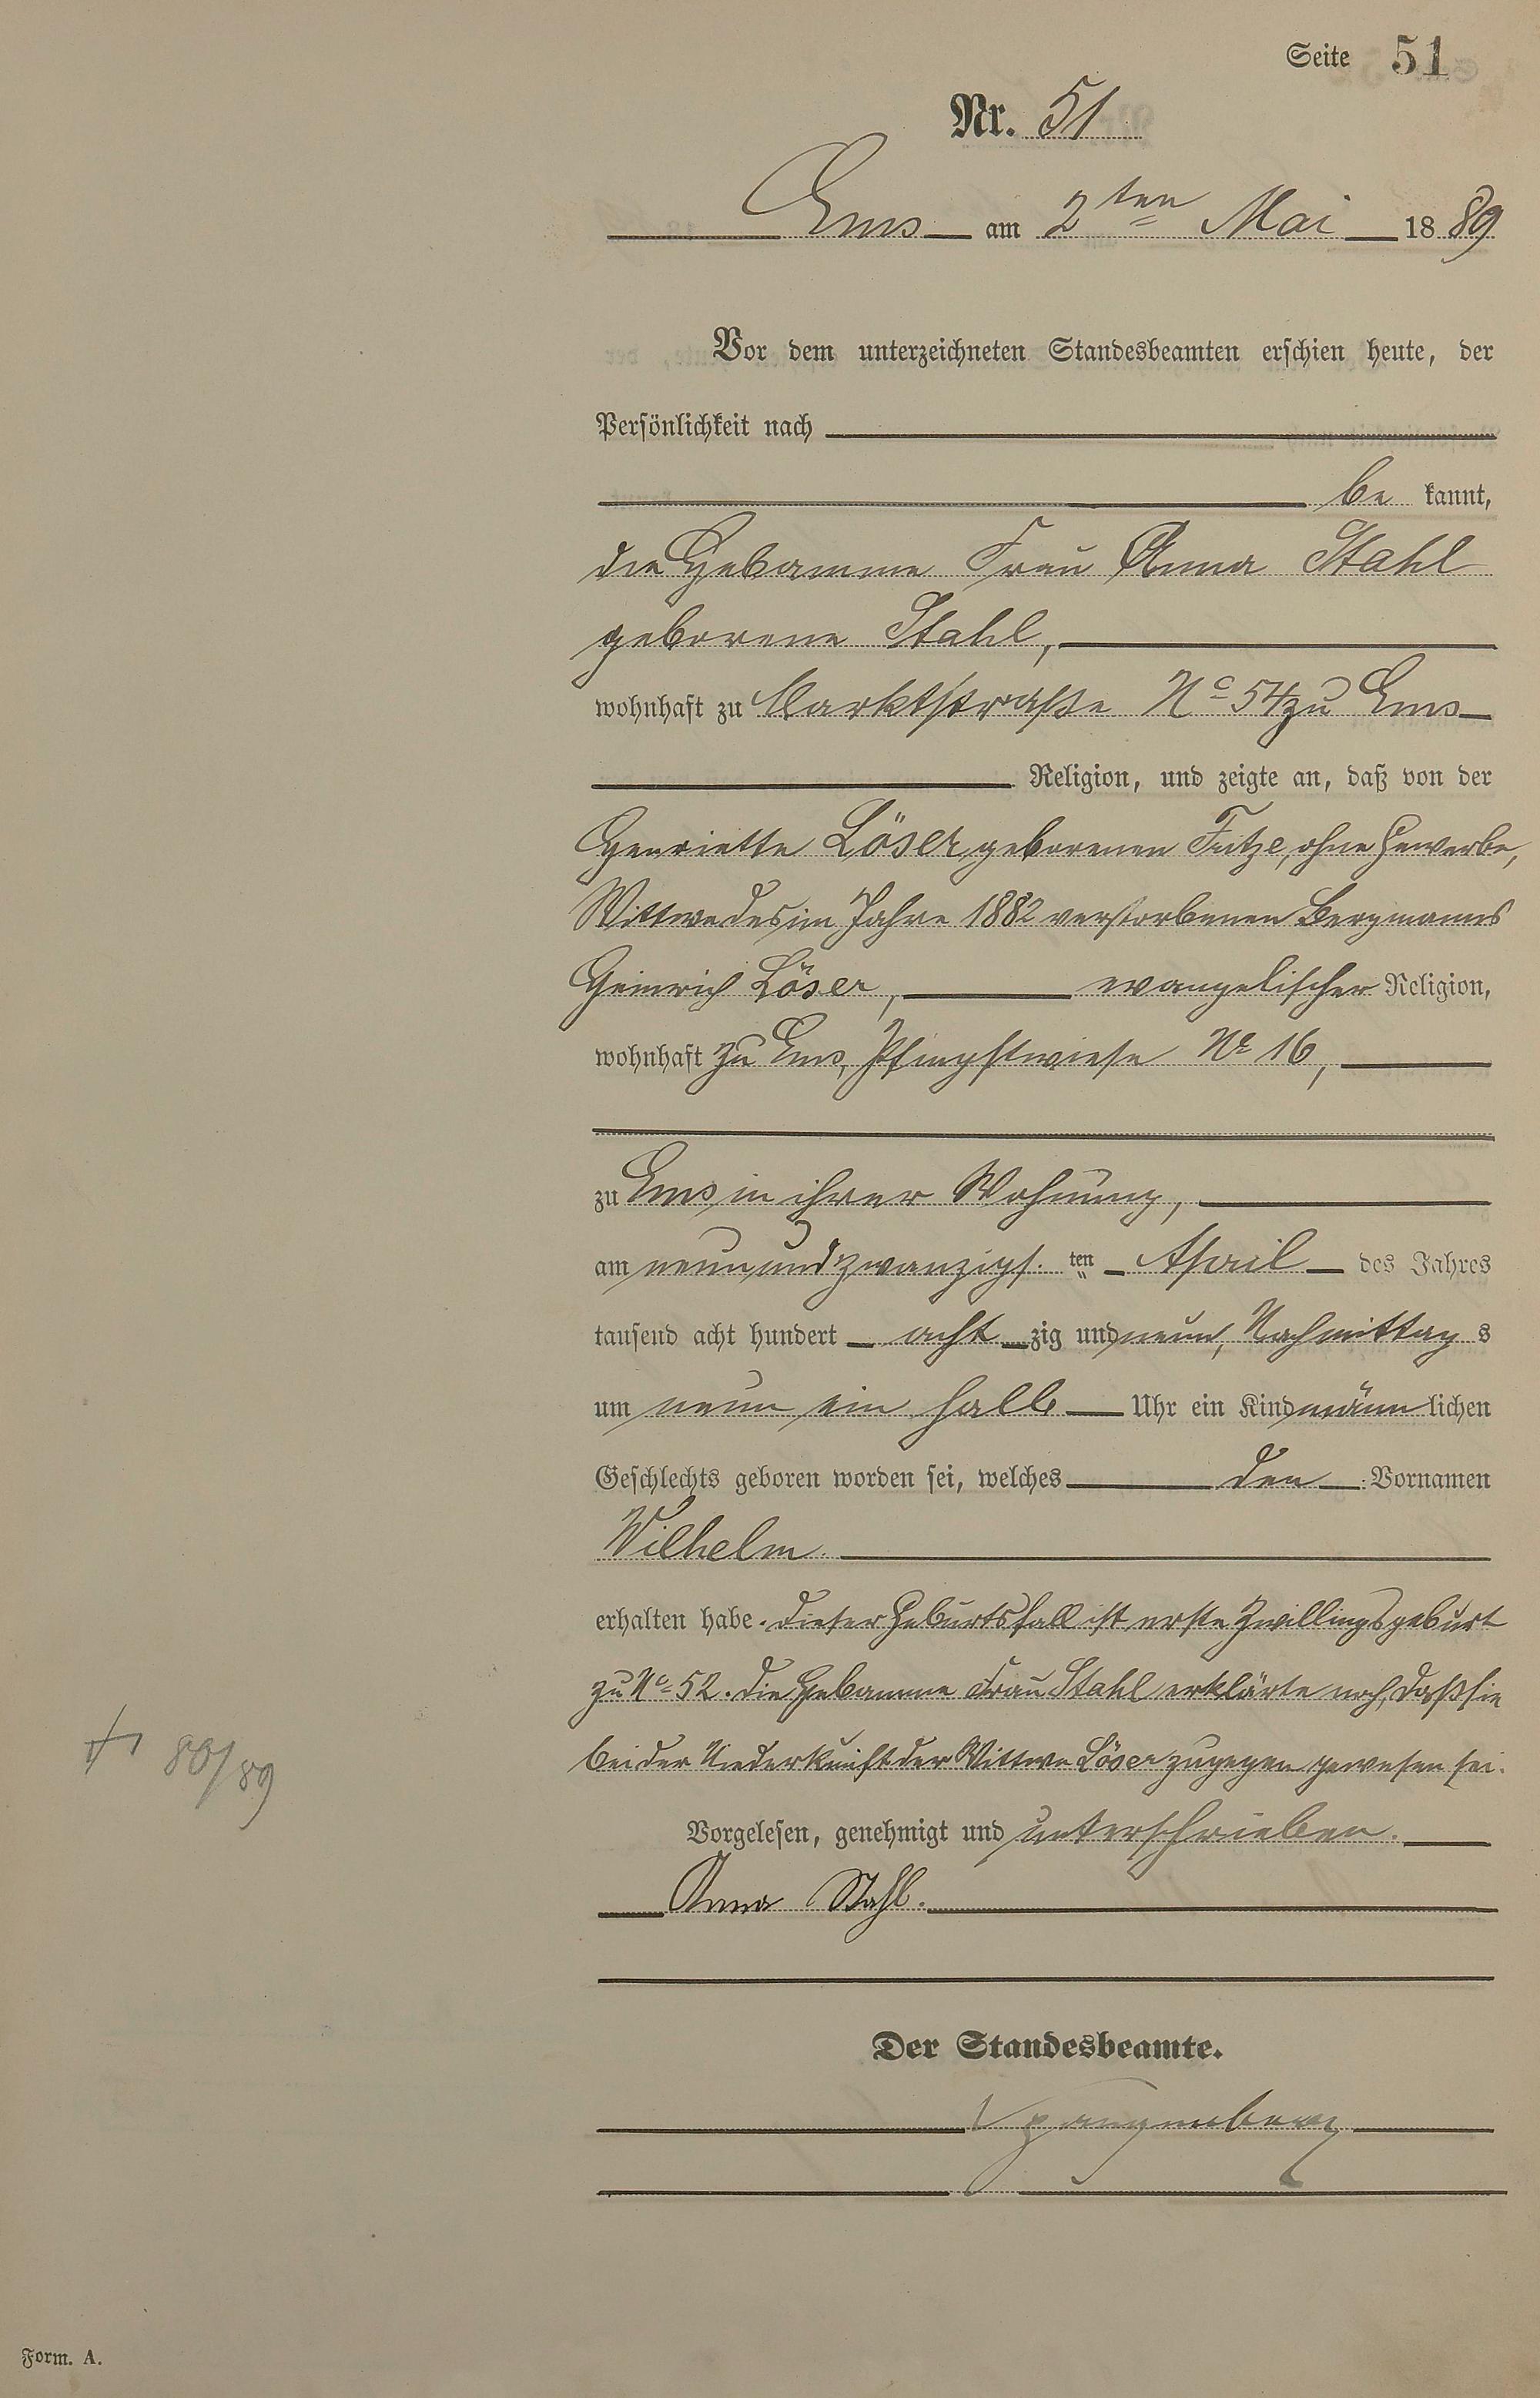 Seite 51
Nr. 51
Ems am 2ten Mai 1889
Vor dem unterzeichneten Standesbeamten erschien heute, der
Persönlichkeit nach
be kannt,
die Hebamme Frau Anna Stahl
geborene Stahl,
wohnhaft zu Marktstraße No 54 zu Ems
Religion, und zeigte an, daß von der
Henriette Löser geborenen Futze, ohne Gewerbe,
Wittwe des im Jahre 1882 verstorbenen Bergmanns
Heinrich Löser, evangelischer Religion,
wohnhaft zu Ems, Pfingstwiese No 16,
zu Ems in ihrer Wohnung,
am neunundzwanzigs.ten April des Jahres
tausend acht hundert acht zig und neun, Nachmittag s
um neun ein halb Uhr ein Kind männ lichen
Geschlechts geboren worden sei, welches den Vornamen
Wilhelm
erhalten habe. Dieser Geburtsfall ist erste Zwillingsgeburt
zu No 52. Die Hebamme Frau Stahl erklärte noch, daß sie
bei der Niederkunft der Wittwe Löser zugegen gewesen sei.
† 80/89
Vorgelesen, genehmigt und unterschrieben.
Anna Stahl.
Der Standesbeamte.
Spangenberg
Form. A.